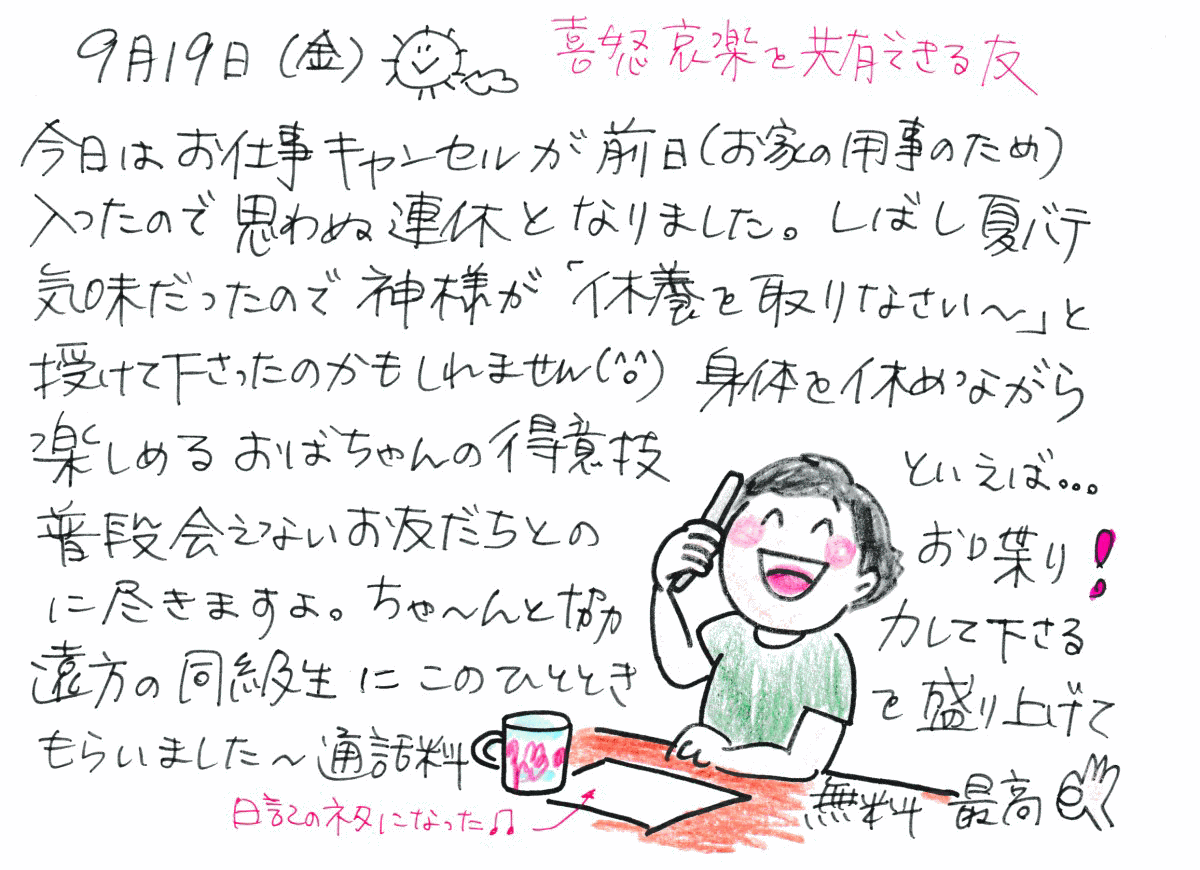 9月19日(金) 喜怒哀楽を共有できる友
今日はお仕事キャンセルが前日(お家の用事のため)
入ったので思わぬ連休となりました。しばし夏バテ
気味だったので神様が「休養を取りなさい〜」と
授けて下さったのかもしれません(^o^) 身体を休めつながら
楽しめるおばちゃんの得意技 といえば…
普段会えないお友だちとの お喋り!
に尽きますよ。ちゃ〜んと協 力して下さる
遠方の同級生にこのひととき を盛り上げて
もらいました〜通話料 無料 最高
日記のネタになった♫